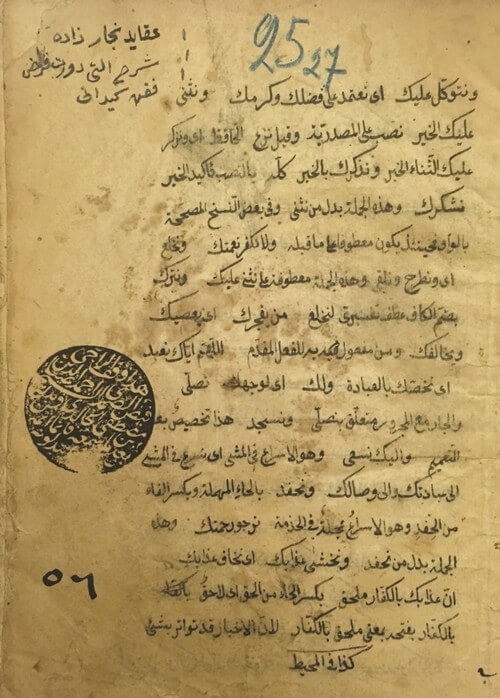 عقايد نجار زاده
شرح التى دورت فرضى
فقه كيدانى
25
27
ونتوكل عليك اى نعتمد على فضلك وكرمك ونثنى
عليك الخير نصب على المصدرية وقيل بنزع الخافض اى ونذكر
عليك الثناء الخير ونذكرك بالخير كله بالنصب تاكيد الخير
نشكرك وهذه الجملة بدل من نثنى وفى بعض النسخ المصححة
بالواو فحينئذ يكون معطوفا على ما قبله ولا نكفر نعمتك ونخلع
اى ونطرح ونلقى وهذه الجملة معطوفة على نثنى عليك ونترك
بضم الكاف عطف تفسيرى لنخلع من يفجرك اى يعصيك
ويخالفك ومن مفعول للفعل المقدم اللهم اياك نعبد
اى نخصك بالعبادة ولك اى لوجهك نصلى
والجار مع المجرور متعلق بنصلى ونسجد هذا تخصيص بعد
التعميم واليك نسعى وهو الاسراع فى المشى اى نسرع فى المشى
الى عبادتك والى وصالك ونحفد بالحاء المهملة وبكسر الفاء
من الحفد وهو الاسراع فى الخدمة نرجو رحمتك وهذه
الجملة بدل من نحفد ونخشى عذابك اى نخاف عذابك
ان عذابك بالكفار ملحق بكسر الحاء من الحق اى لاحق بالكفار
بالكفار بفتحه بمعنى ملحق بالكفار لان الاخبار قد تواتر بشئ
كذا فى المحيط
٥٦